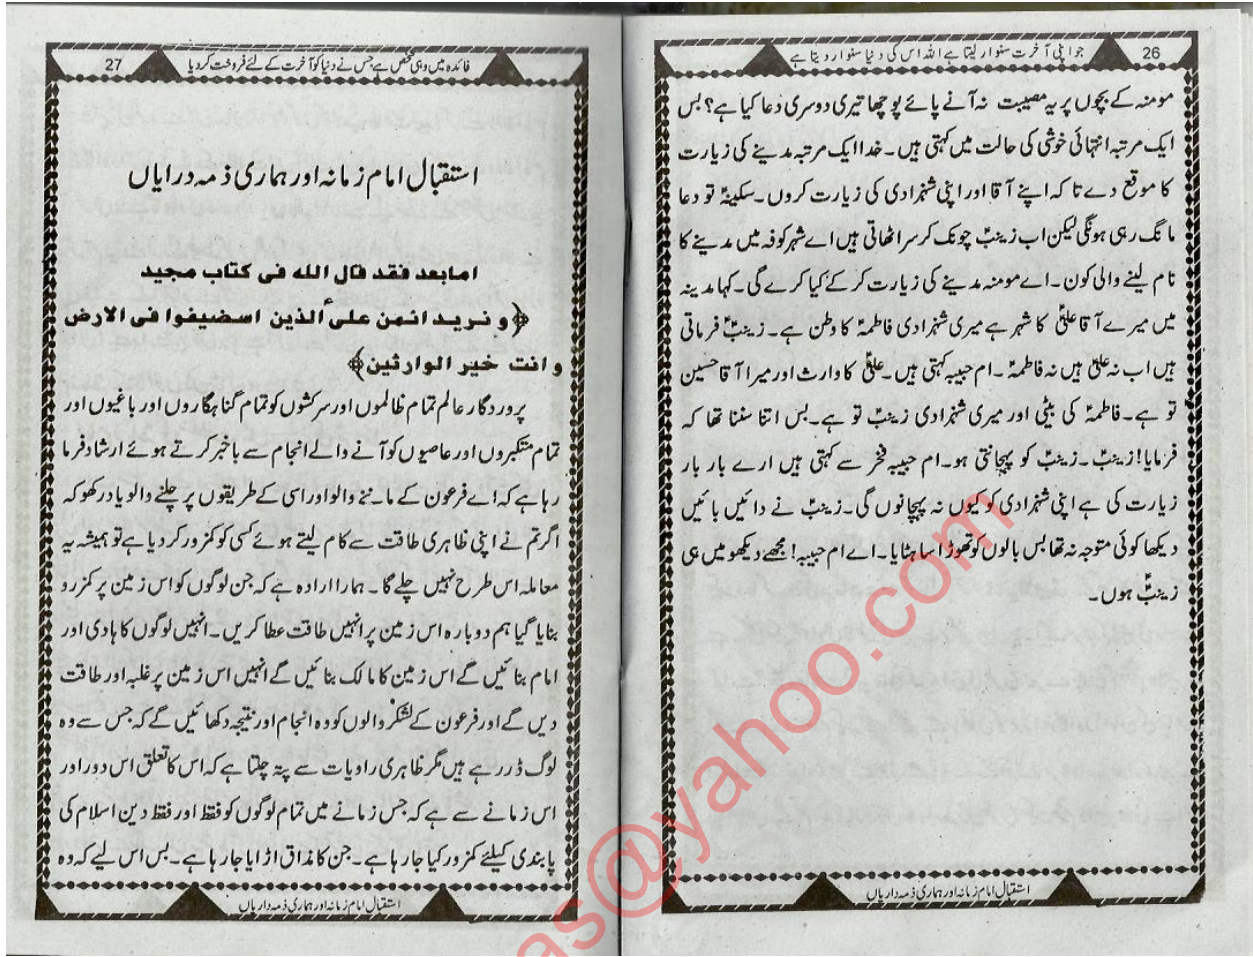 26
جو اپنی آخرت سنوار لیتا ہے اللہ اس کی دنیا سنوار دیتا ہے
مومنہ کے بچوں پر یہ مصیبت نہ آنے پائے پوچھا تیری دوسری دعا کیا ہے؟ بس
ایک مرتبہ انتہائی خوشی کی حالت میں کہتی ہیں۔ خدا ایک مرتبہ مدینے کی زیارت
کا موقع دے تا کہ اپنے آقا اور اپنی شہزادی کی زیارت کروں۔ سکینہؑ تو دعا
مانگ رہی ہونگی لیکن اب زینبؑ چونک کر سر اٹھاتی ہیں اے شہر کوفہ میں مدینے کا
نام لینے والی کون۔ اے مومنہ مدینے کی زیارت کر کے کیا کرے گی۔ کہا مدینہ
میں میرے آقا علیؑ کا شہر ہے میری شہزادی فاطمہؑ کا وطن ہے۔ زینبؑ فرماتی
ہیں اب نہ علیؑ ہیں نہ فاطمہؑ۔ ام حبیبہ کہتی ہیں۔ علیؑ کا وارث اور میرا آقا حسین
تو ہے۔ فاطمہؑ کی بیٹی اور میری شہزادی زینبؑ تو ہے۔ بس اتنا سننا تھا کہ
فرمایا! زینبؑ۔ زینبؑ کو پہچانتی ہو۔ ام حبیبہ فخر سے کہتی ہیں ارے بار بار
زیارت کی ہے اپنی شہزادی کو کیوں نہ پہچانوں گی۔ زینبؑ نے دائیں بائیں
دیکھا کوئی متوجہ نہ تھا بس بالوں کو تھوڑا سا ہٹایا۔ اے ام حبیبہ! مجھے دیکھو میں ہی
زینبؑ ہوں۔
استقبال امام زمانہ اور ہماری ذمہ داریاں
27
فائدہ میں وہی شخص ہے جس نے دنیا کو آخرت کے لئے فروخت کر دیا
استقبال امام زمانہ اور ہماری ذمہ درایاں
امابعد فقد قال الله فی کتاب مجید
﴿و نرید انمن علی الذین اسضیفوا فی الارض
و انت خیر الوارثین﴾
پروردگار عالم تمام ظالموں اور سرکشوں کو تمام گناہگاروں اور باغیوں اور
تمام متکبروں اور عاصیوں کو آنے والے انجام سے باخبر کرتے ہوئے ارشاد فرما
رہا ہے کہ اے فرعون کے ماننے والو اور اسی کے طریقوں پر چلنے والو یاد رکھو کہ
اگر تم نے اپنی ظاہری طاقت سے کام لیتے ہوئے کسی کو کمزور کر دیا ہے تو ہمیشہ یہ
معاملہ اس طرح نہیں چلے گا۔ ہمارا ارادہ ہے کہ جن لوگوں کو اس زمین پر کمزرو
بنایا گیا ہم دوبارہ اس زمین پر انہیں طاقت عطا کریں۔ انہیں لوگوں کا ہادی اور
امام بنائیں گے اس زمین کا مالک بنائیں گے انہیں اس زمین پر غلبہ اور طاقت
دیں گے اور فرعون کے لشکر والوں کو وہ انجام اور نتیجہ دکھائیں گے کہ جس سے وہ
لوگ ڈر رہے ہیں مگر ظاہری راویات سے پتہ چلتا ہے کہ اس کا تعلق اس دور اور
اس زمانے سے ہے کہ جس زمانے میں تمام لوگوں کو فقط اور فقط دین اسلام کی
پابندی کیلئے کمزور کیا جا رہا ہے۔ جن کا مذاق اڑایا جا رہا ہے۔ بس اس لیے کہ وہ
استقبال امام زمانہ اور ہماری ذمہ داریاں
as@yahoo.com